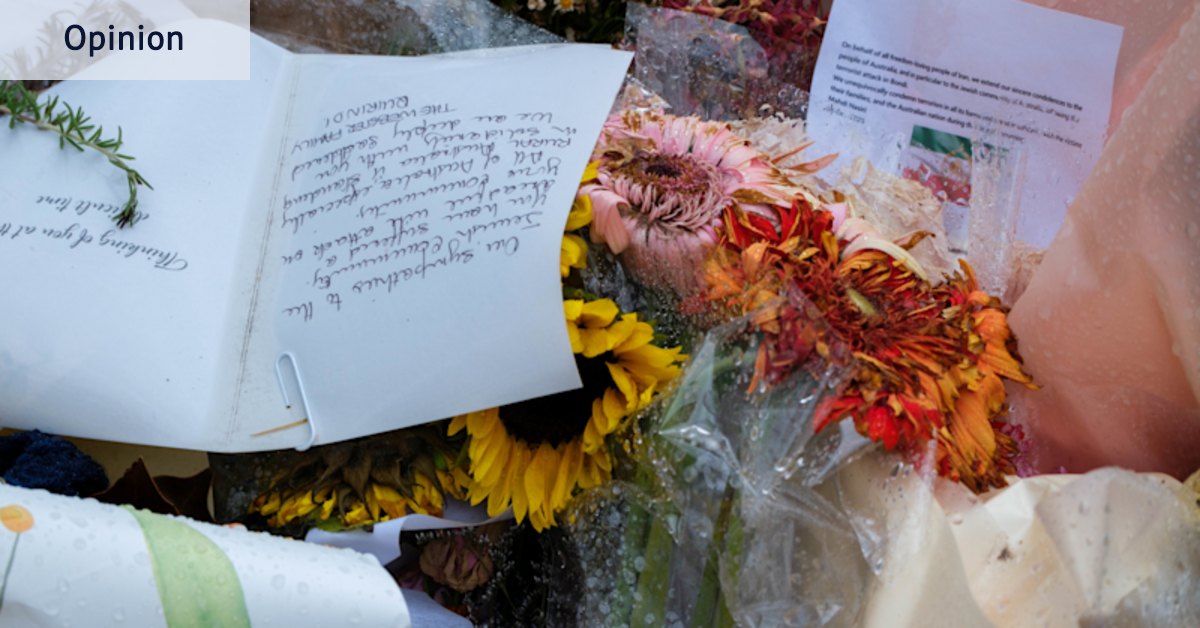 Opinion
Thinking of you at
time
Our sympathies to the
Jewish community.
You have suffered a
attack on
your community.
All of Australia especially
Rural Australia is standing
in solidarity with you
We are deeply saddened
THE WEBSTER FAMILY
BURINDI
On behalf of all freedom-loving people of Iran, we extend our sincere condolences to the
people of Australia, and in particular to the Jewish
terrorist attack in Bondi.
We unequivocally condemn terrorism in all its forms
their families, and the Australian nation during
Mahdi Nasiri